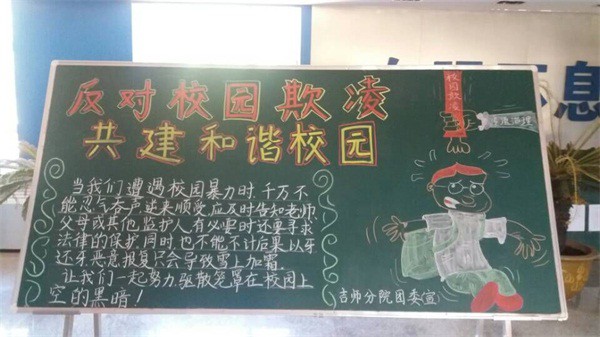 反对校园欺凌
共建和谐校园
当我们遭遇校园暴力时千万不
能忍气吞声逆来顺受应及时告知老师
父母或其他监护人有必要时还要寻求
法律的保护同时也不能不计后果以牙
还牙恶意报复只会导致雪上加霜
让我们一起努力驱散笼罩在校园上
空的黑暗！
校园欺凌
吉师分院团委(宣)
息